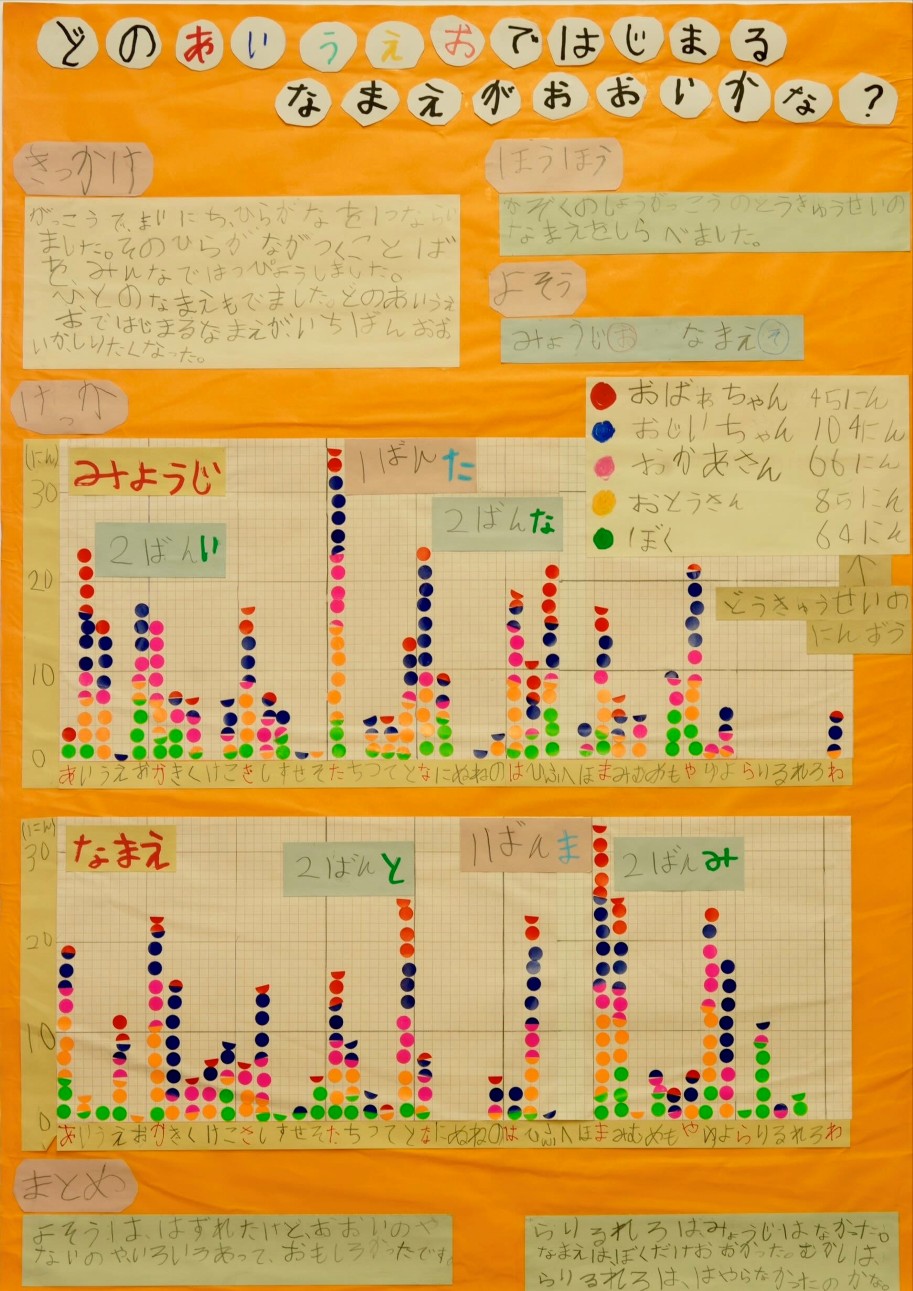 どのあいうえおではじまる
なまえがおおいかな?
きっかけ
がっこうで、まいにち、ひらがなを1つならい
ました。そのひらがながつくことば
を、みんなではっぴょうしました。
ひとのなまえもでました。どのあいうえ
おではじまるなまえが、いちばんおお
いかしりたくなった。
ほうほう
かぞくのしょうがっこうのどうきゅうせいの
なまえをしらべました。
よそう
みょうじお なまええ
けっか
おばぁちゃん 45にん
おじいちゃん 104にん
おかあさん 66にん
おとうさん 85にん
ぼく 64にん
↑
どうきゅうせいの
にんずう
(にん)
みょうじ
1ばんた
2ばんい
2ばんな
30
20
10
0
あいうえおかきくけこさしすせそたちつてとなにぬねのはひふへほまみむめもやゆよらりるれろわ
(にん)
なまえ
2ばんと
1ばんま
2ばんみ
30
20
10
0
あいうえおかきくけこさしすせそたちつてとなにぬねのはひふへほまみむめもやゆよらりるれろわ
まとめ
よそうは、はずれたけど、おおいのや
ないのや、いろいろあって、おもしろかったです。
らりるれろはみょうじはなかった。
なまえは、ぼくだけおおかった。むかしは、
らりるれろは、はやらなかったのかな。